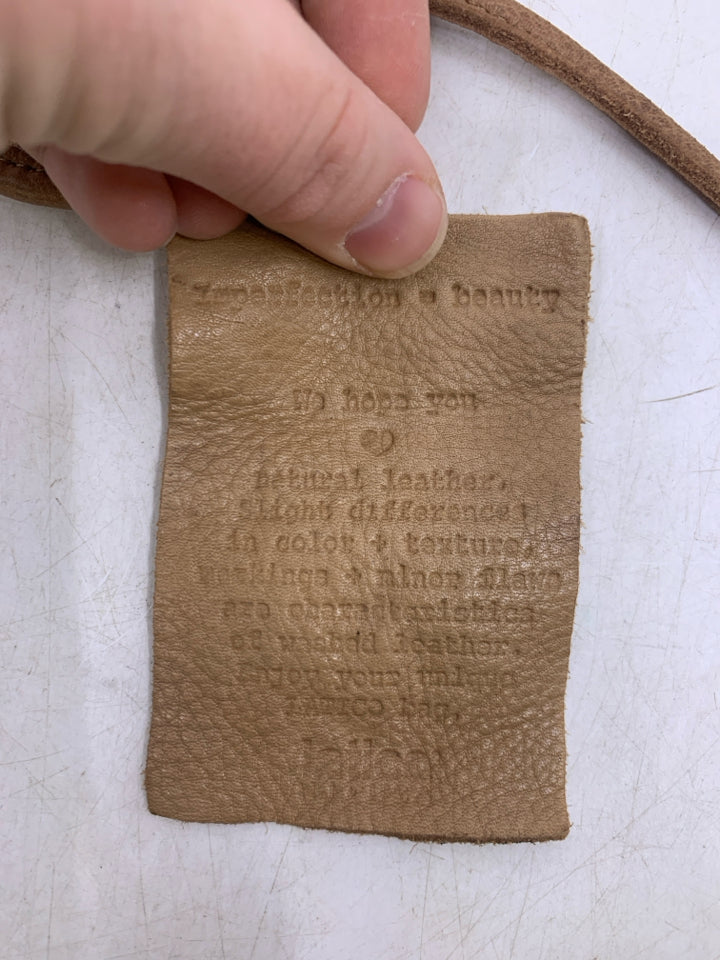 Imperfection = beauty
We hope you
natural leather.
Slight differences
in color + texture,
markings + minor flaws
are characteristics
of washed leather.
Enjoy your unique
LATICO bag,
latico